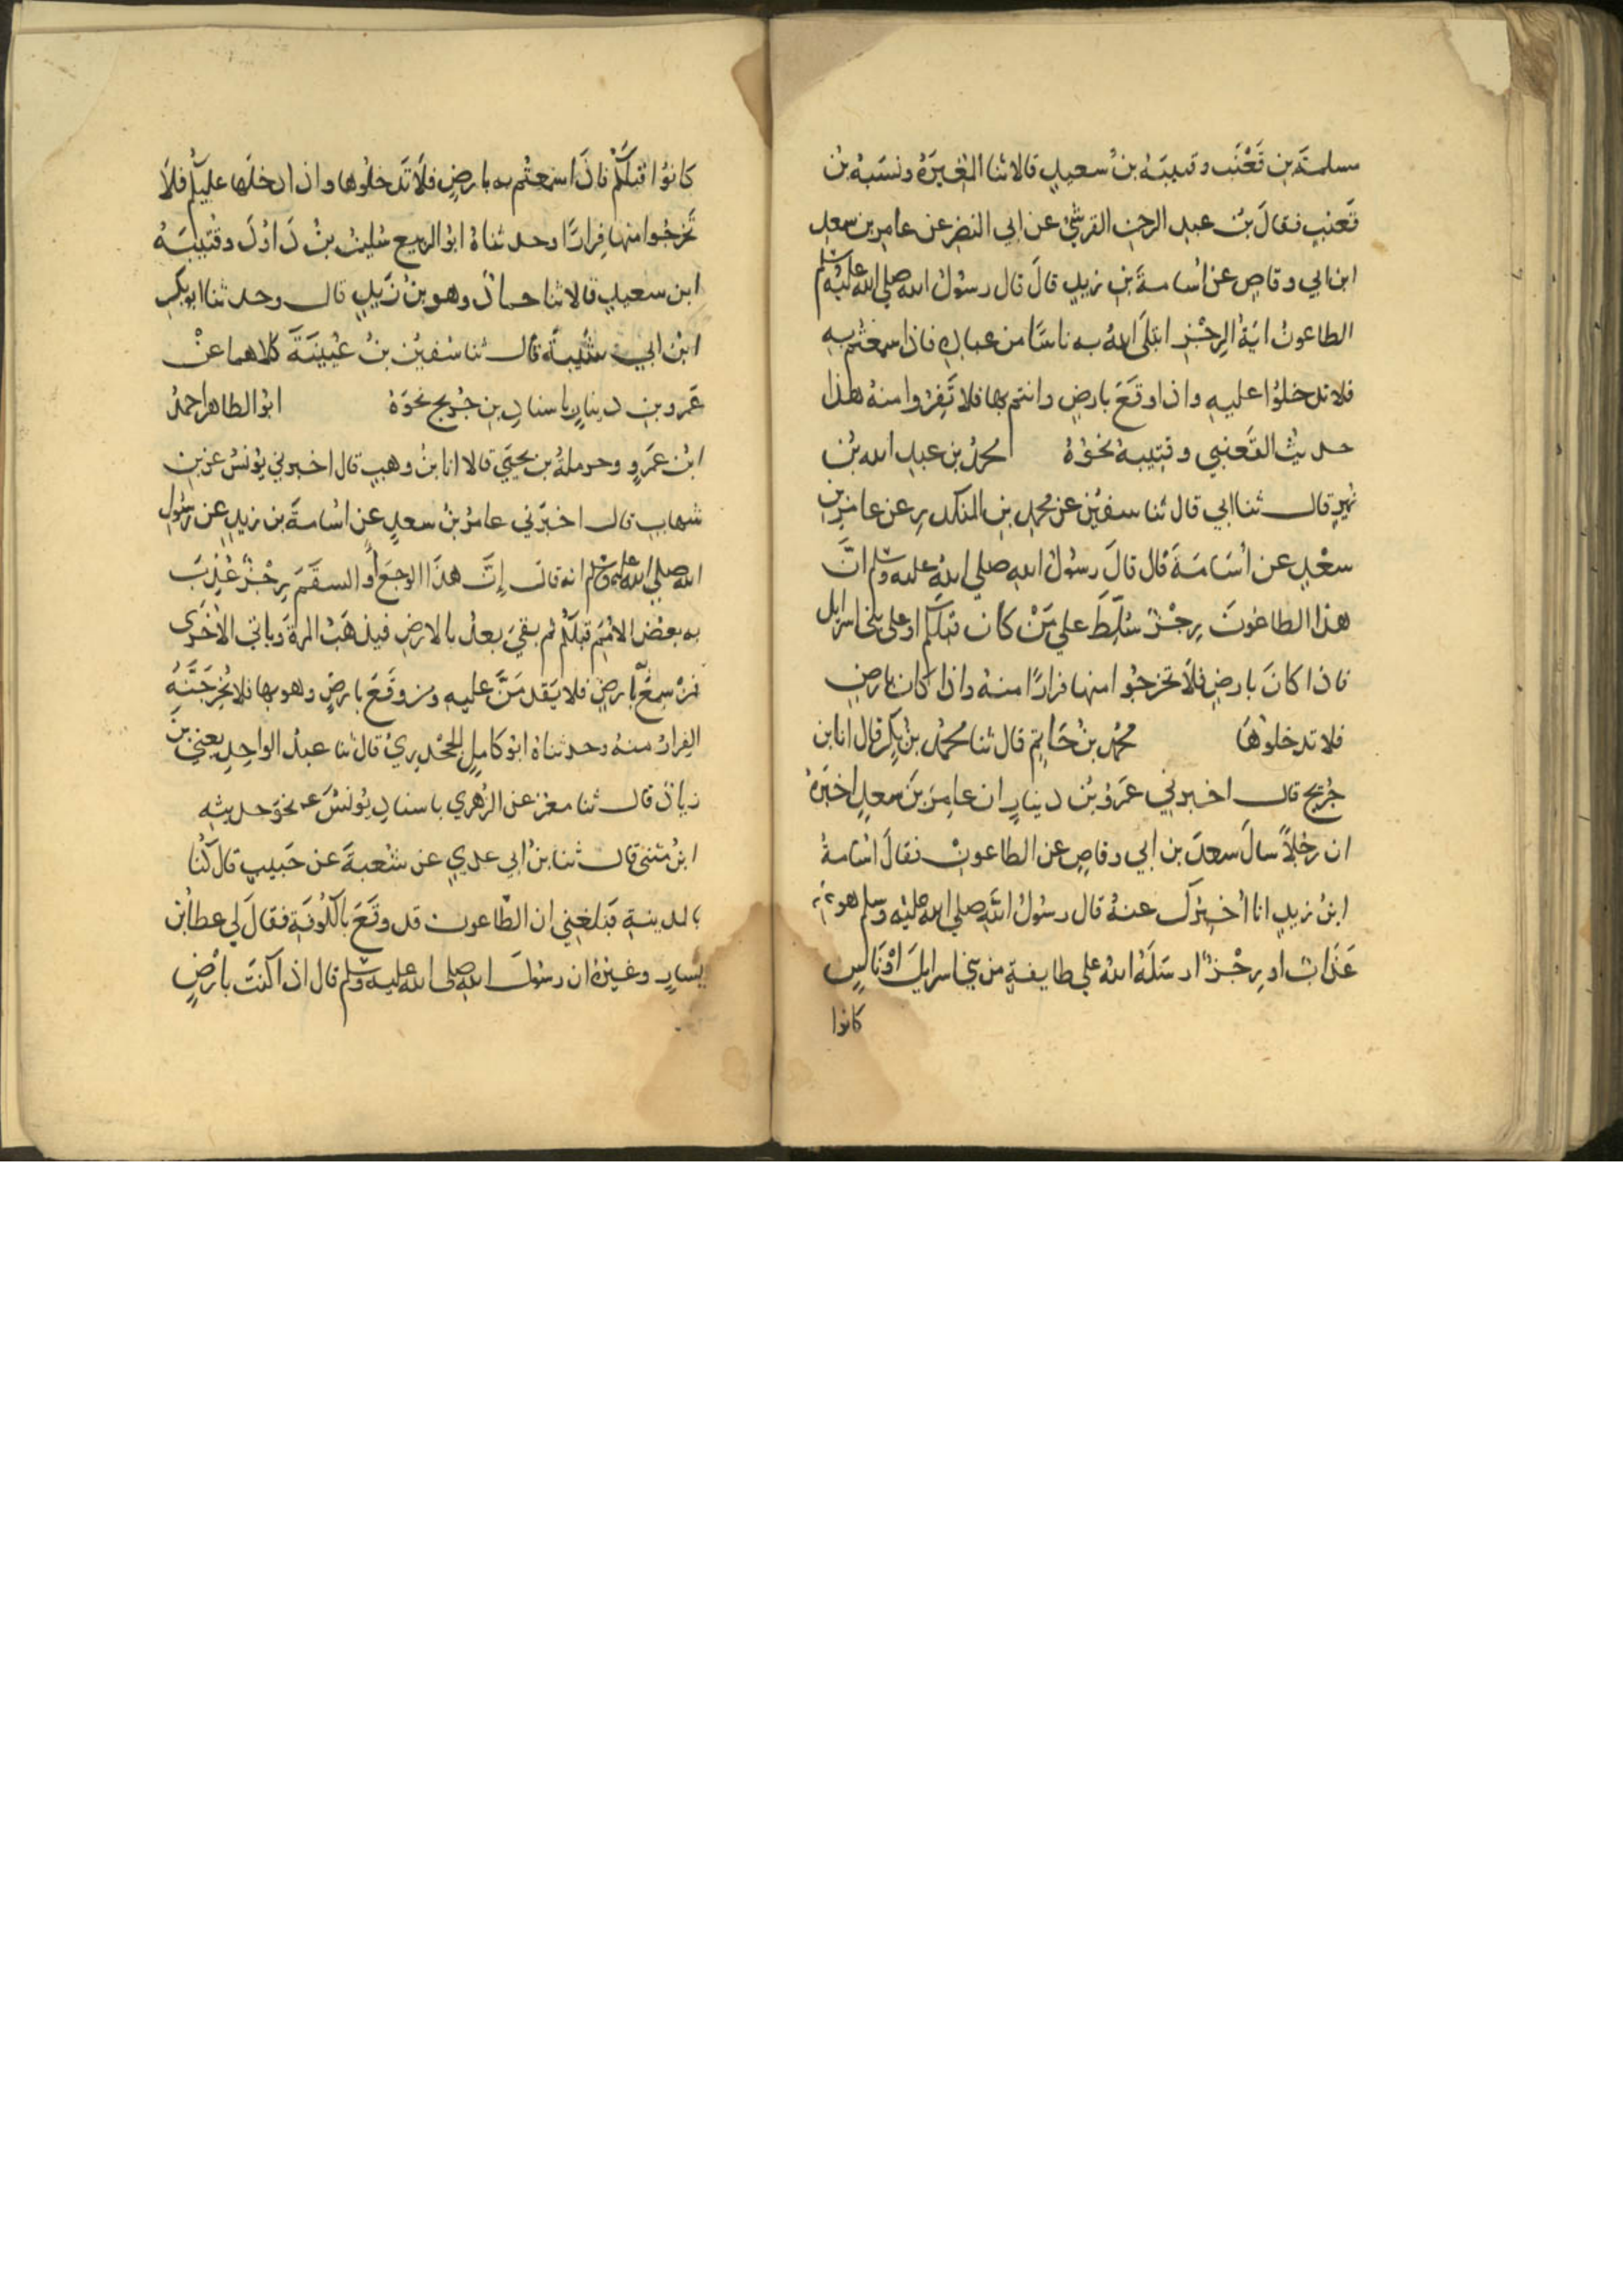 مسلمة بن قَعْنَب وقتيبَةُ بنُ سعيدٍ قالا ثنا المُغِيرَةُ ونسَبَهُ بنُ
قَعنبٍ فقالَ بنُ عبدِ الرحمن القرشيُّ عن ابي النضرِ عن عامرِ بن سعدِ
ابن ابي وقاصٍ عن اسامةَ بنِ زيدٍ قالَ قال رسُولُ الله صلي الله عليه وسلم
الطاعونُ ايَةُ الرِجْزِ ابتلَى اللهُ به ناسًا من عبادِه فاذا سمعتُم به
فلا تدخلوُا عليهِ واذا وقَعَ بارضٍ وانتم بها فلا تَفِرّوا منهُ هذا
حديثُ القَعنبي وقتيبة نحوُهُ محمدُ بن عبدِ الله بنُ
نميرٍ قال ثنا ابي قال ثنا سفيٰن عن محمدِ بنِ المنكدرِ عن عامرِ بنِ
سعْدٍ عن أُسَامَةَ قال قالَ رسُولُ اللهِ صلي اللهُ عليه وسلم انَّ
هذا الطاعُونَ رِجْزٌ سُلِّطَ علي مَنْ كان قبلكم او على بني اسرايل
فاذا كانَ بارضٍ فلاَ تخرجُوا منها فرارًا منهُ واذا كان بارضٍ
فلا تدخلوُهَا محمّدُ بنُ حَاتِمٍ قال ثنا محمّدُ بنُ بكرٍ قال انا بن
جُرَيجٍ قال اخبرني عَمْرُو بنُ دينارٍ ان عامرَ بنَ سعدٍ اخبَرَهُ
ان رجُلاً سالَ سعدَ بن ابي وقاصٍ عن الطاعونِ فقالَ اسُامةُ
ابنُ زيدٍ انا اُخبرُكَ عنهُ قال رسُولُ اللهِ صلي الله عليه وسلم هو
عَذَابٌ او رِجْزٌ ارسَلَهُ اللهُ علي طايفةٍ من بني اسرايلَ اوْ نَاسٍ
كانوا
كانوُا قبْلَكُمْ فاذَا سَمعتُم به بارضٍ فلاَ تَدخلُوها واذا دخلَها عليكُم فلاَ
تَخرجُوا منها فِرارًا وحدثناهُ ابوُ الربيع سُليمٰن بنُ دَاوُدَ وقُتيبَةُ
ابن سعيدٍ قالا ثنا حمادٌ وهو بنُ زَيدٍ قال وحدثنا ابو بكرِ
ابنُ ابي شَيبةَ قال ثنا سُفيٰن بنُ عُيَينَةَ كلاهما عنْ
عَمرو بن دينارٍ باسنادِ بنِ جُريجٍ نحوَهُ ابوُ الطاهرِ احمدُ
ابنُ عَمرٍو وحرملةُ بن يحيَي قالا انا بنُ وهبٍ قال اخبرني يوُنسُ عن بنِ
شهابٍ قال اخبَرَني عامرُ بنُ سعدٍ عن اسُامةَ بن زيدٍ عن رسُولِ
الله صلي الله عليه وسلم انه قال إِنَّ هذَا الوجَعَ أَوِ السقَمَ رِجْزٌ عُذِّبَ
به بعْضُ الامُمَ قبْلَكُمْ ثم بقيَ بعدُ بالارضِ فيذهَبُ المرةَ وياتي الاخْرَى
فمنْ سمعَ بارضٍ فلا يَقدمَنَّ عليهِ ومن وقَعَ بارضٍ وهو بها فلا يُخرجَنَّهُ
الفِرارُ منهُ وحدثناهُ ابوُ كاملٍ الجحْدريُّ قال ثنا عبدُ الواحدِ يعنيِ بنَ
زيادٍ قال ثنا معمرٌ عن الزُهري باسنادِ يُونُسَ نحوَ حديثِهِ
ابنُ مثنَّى قال ثنا بنُ ابي عدِيٍ عن شعبةَ عن حَبيبٍ قال كُنَّا
بالمدينةِ فبَلغنِي ان الطّاعون قد وقَعَ بالكُوفَةِ فقالَ لي عطاءُ بن
يَسارٍ وغيرُهُ ان رسُولَ اللهِ صلى الله عليه وسلم قال اذا كنتَ بارْضٍ